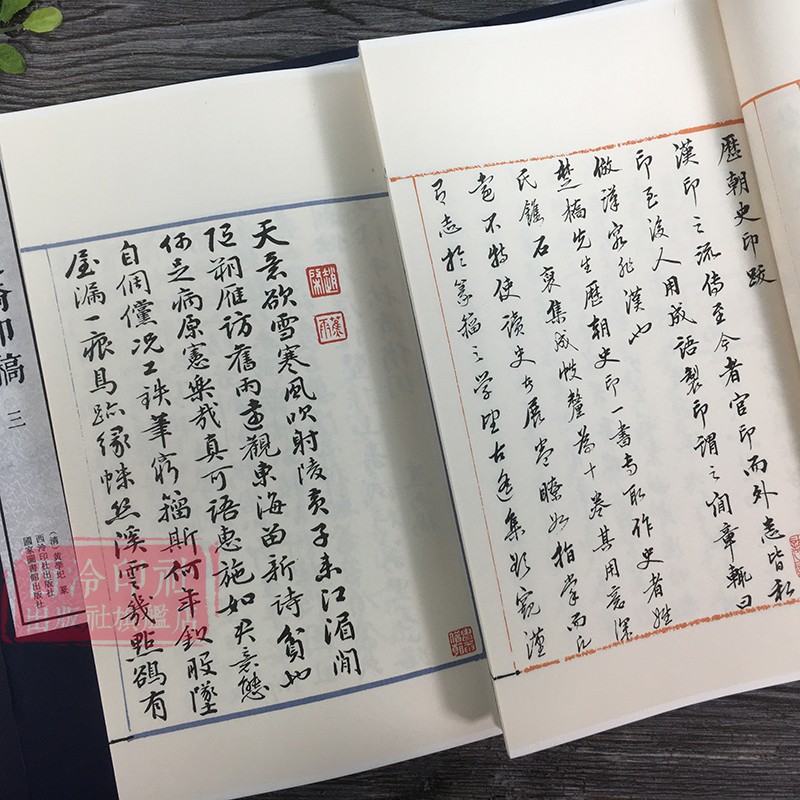 歷朝史印跋
漢印之流傳至今者官印而外悉皆私
印至後人用成語製印謂之閒章輒曰
倣漢實非漢也
楚橋先生歷朝史印一書專取作史者姓
氏鐫石裒集成帙釐為十卷其用意深
不特使讀史者展卷瞭如指掌而凡
有志於篆籀之學望古遙集欲窺漢
天意欲雪寒風吹射陵黃子來江湄閒
朔雁訪舊雨遠觀東海茁新詩貧也
何是病原憲樂哉真可語惠施如君意態
自倜儻況工鐵筆窮籀斯何年釵股墜
屋漏一痕鳥跡緣蛛絲溪雲幾點鶴有
橋印稿 三
（清）黃學圯 篆
西泠印社出版社
國家圖書館出版社
泠印社
出版社旗艦店